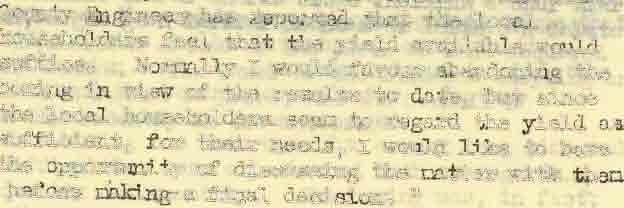 County Engineer has reported that the local
householders feel that the yield available would
suffice. Normally I would favour abandoning the
boring in view of the results to date, but since
the local householders seem to regard the yield as
sufficient, for their needs, I would like to have
the opportunity of discussing the matter with them
before making a final decision. "